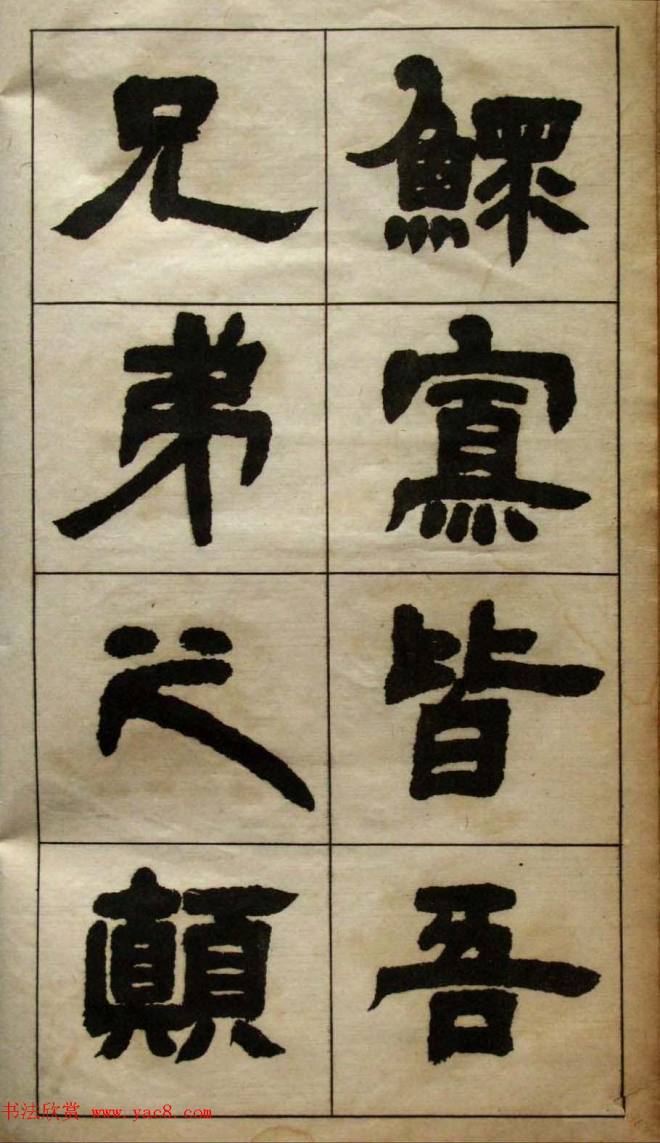 鰥寡皆吾
兄弟之顛
书法欣赏 www.yac8.com